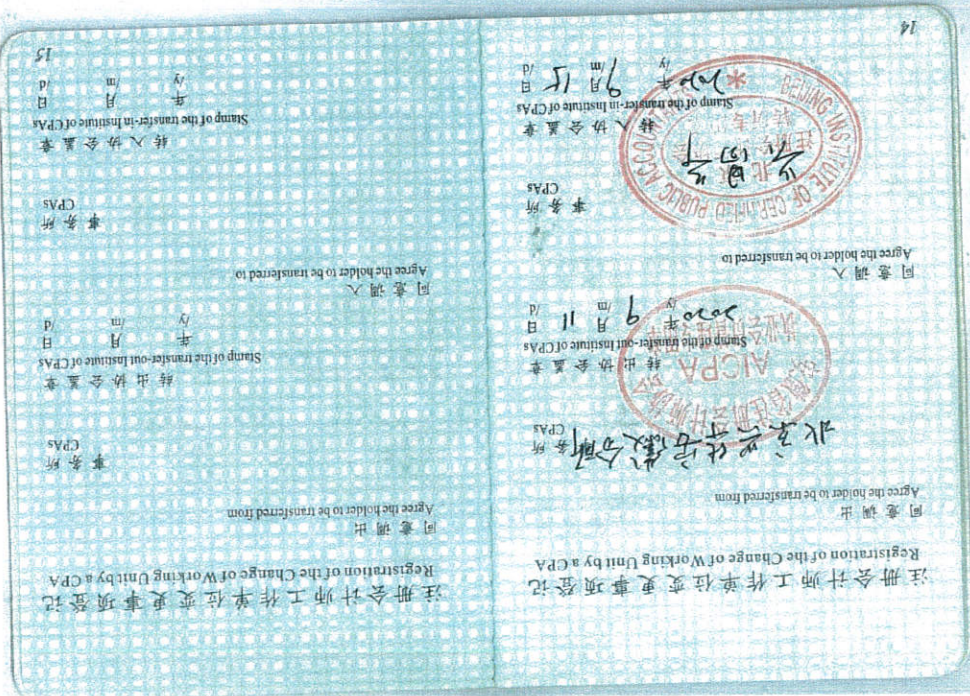 注册会计师工作单位变更事项登记
Registration of the Change of Working Unit by a CPA
同意调出
Agree the holder to be transferred from
事务所
CPAs
AICPA
转出协会盖章
Stamp of the transfer-out Institute of CPAs
2020年 9月 11日
/y /m /d
同意调入
Agree the holder to be transferred to
事务所
CPAs
BEIJING INSTITUTE OF CERTIFIED PUBLIC ACCOUNTANTS
转入协会盖章
Stamp of the transfer-in Institute of CPAs
2020年 9月 15日
/y /m /d
14
注册会计师工作单位变更事项登记
Registration of the Change of Working Unit by a CPA
同意调出
Agree the holder to be transferred from
事务所
CPAs
转出协会盖章
Stamp of the transfer-out Institute of CPAs
年 月 日
/y /m /d
同意调入
Agree the holder to be transferred to
事务所
CPAs
转入协会盖章
Stamp of the transfer-in Institute of CPAs
年 月 日
/y /m /d
15